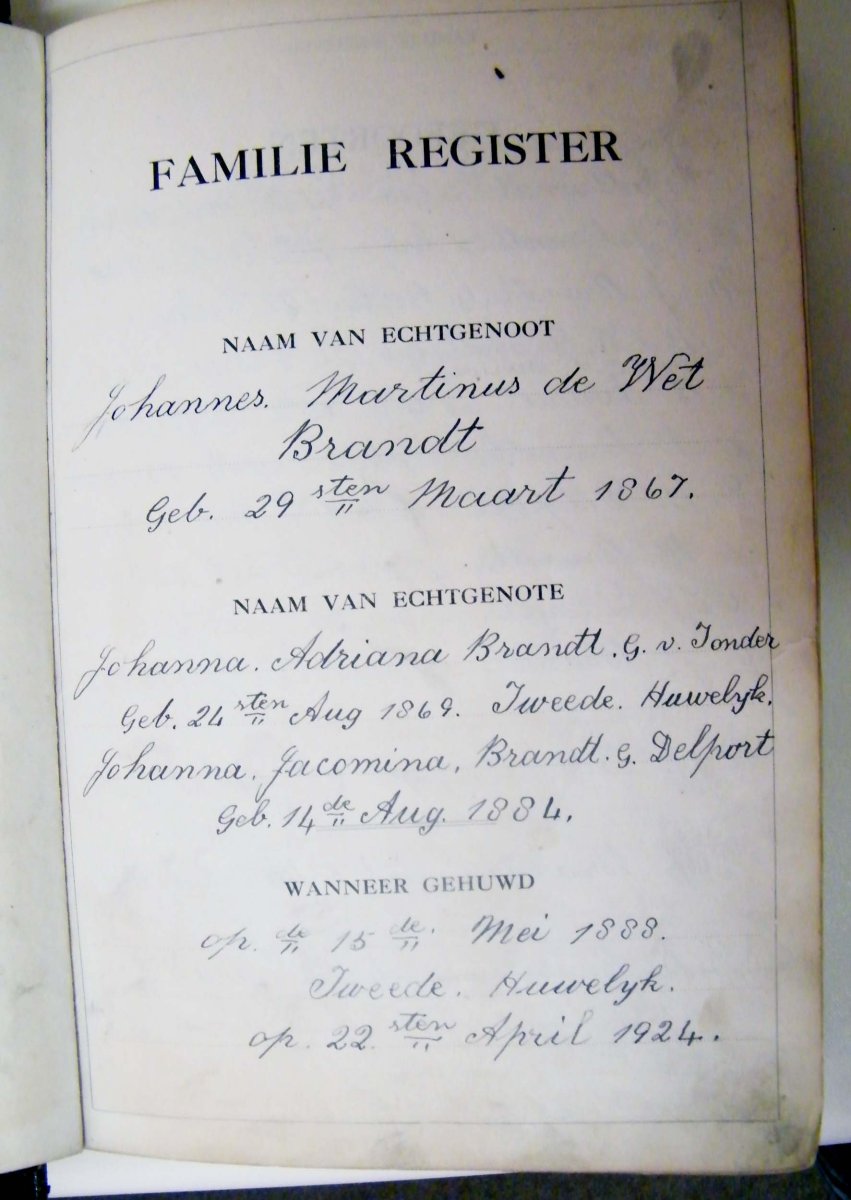 FAMILIE REGISTER
NAAM VAN ECHTGENOOT
Johannes. Martinus de Wet
Brandt
Geb. 29 sten Maart 1867.
NAAM VAN ECHTGENOTE
Johanna. Adriana Brandt. G. v. Tonder
Geb. 24 sten Aug 1869. Tweede. Huwelyk.
Johanna. Jacomina. Brandt. G. Delport
Geb. 14 de Aug. 1884.
WANNEER GEHUWD
op. de 15 de. Mei 1888.
Tweede. Huwelyk.
op. 22. sten April 1924.